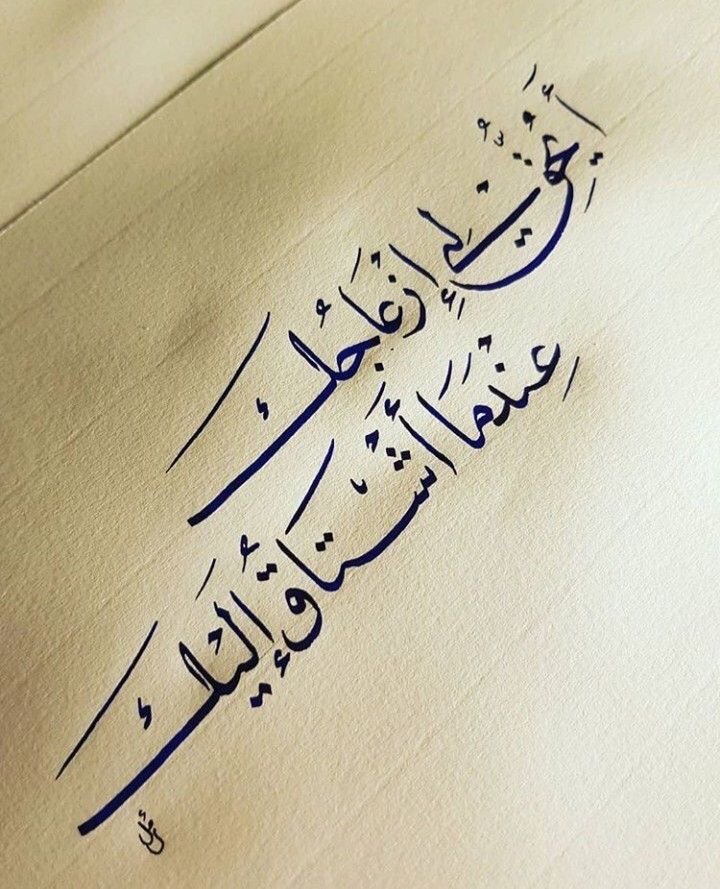 أَيَحِقُّ لِي إِزْعَاجُكَ
عِنْدَمَا أَشْتَاقُ إِلَيْكَ